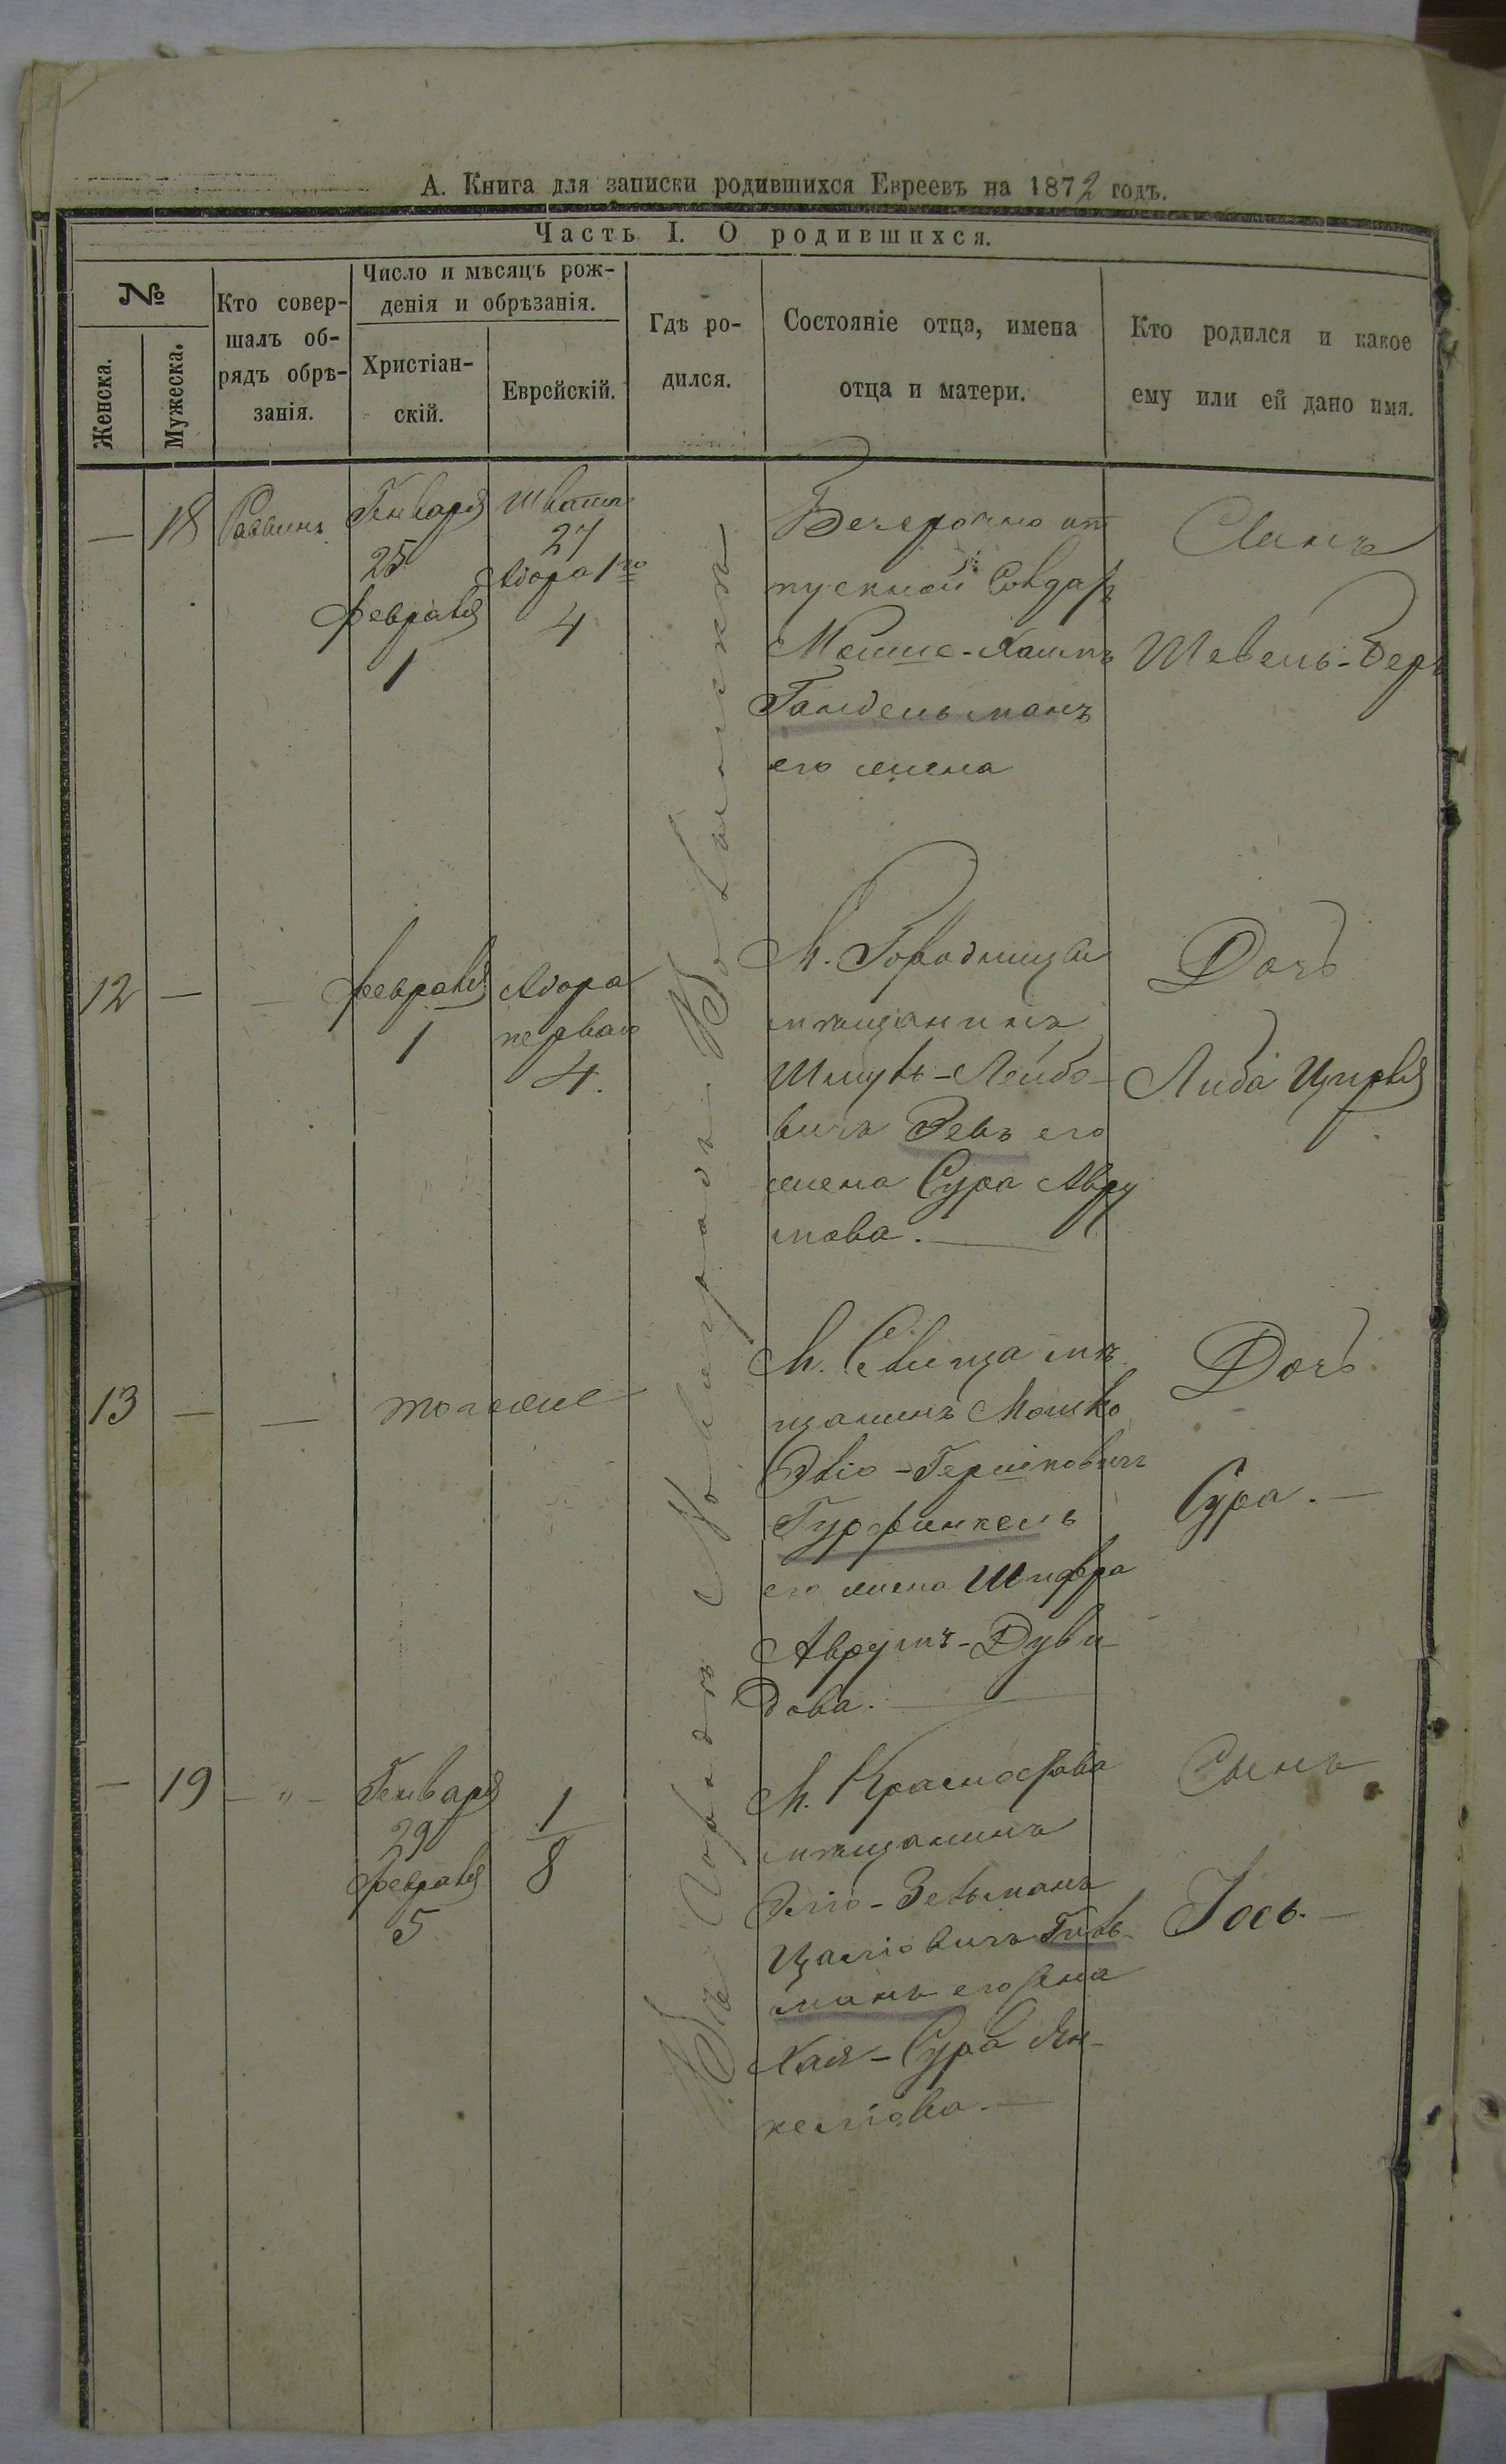 А. Книга для записки родившихся Евреевъ на 1872 годъ.
Часть I. О родившихся.
№
Женска.
Мужеска.
Кто совер-
шалъ об-
рядъ обрѣ-
занія.
Число и мѣсяцъ рож-
денія и обрѣзанія.
Христіан-
скій.
Еврейскій.
Гдѣ ро-
дился.
Состояніе отца, имена
отца и матери.
Кто родился и какое
ему или ей дано имя.
—
18
Раввинъ
Генваря
25
Февраля
1
Швата
27
Адара 1го
4
Въ Городѣ Новоградъ-Волынскѣ
Безсрочно от
пускной Солдат
Мошко-Хаимъ
Гандельманъ
его жена
Сынъ
Шевель-Беръ
12
—
—
Февраля
1
Адара
перваго
4.
М. Городницы
мѣщанинъ
Шмуль-Лейбо-
вичъ Зевъ его
жена Сура Авру
мова.
Дочь
Либа Цирля
13
—
—
тогоже
мѣ
щанинъ Мошко
Элio-Гершковичъ
Гурфинкель
его жена Шифра
Аврумъ-Дуви
дова.
Дочь
Сура.
—
19
— " —
Генваря
29
Февраля
5
1
8
М. Красностава
мѣщанинъ
Зельманъ
Гиль-
манъ его жена
Хая-Сура Ян-
келіова.
Сынъ
Іось.